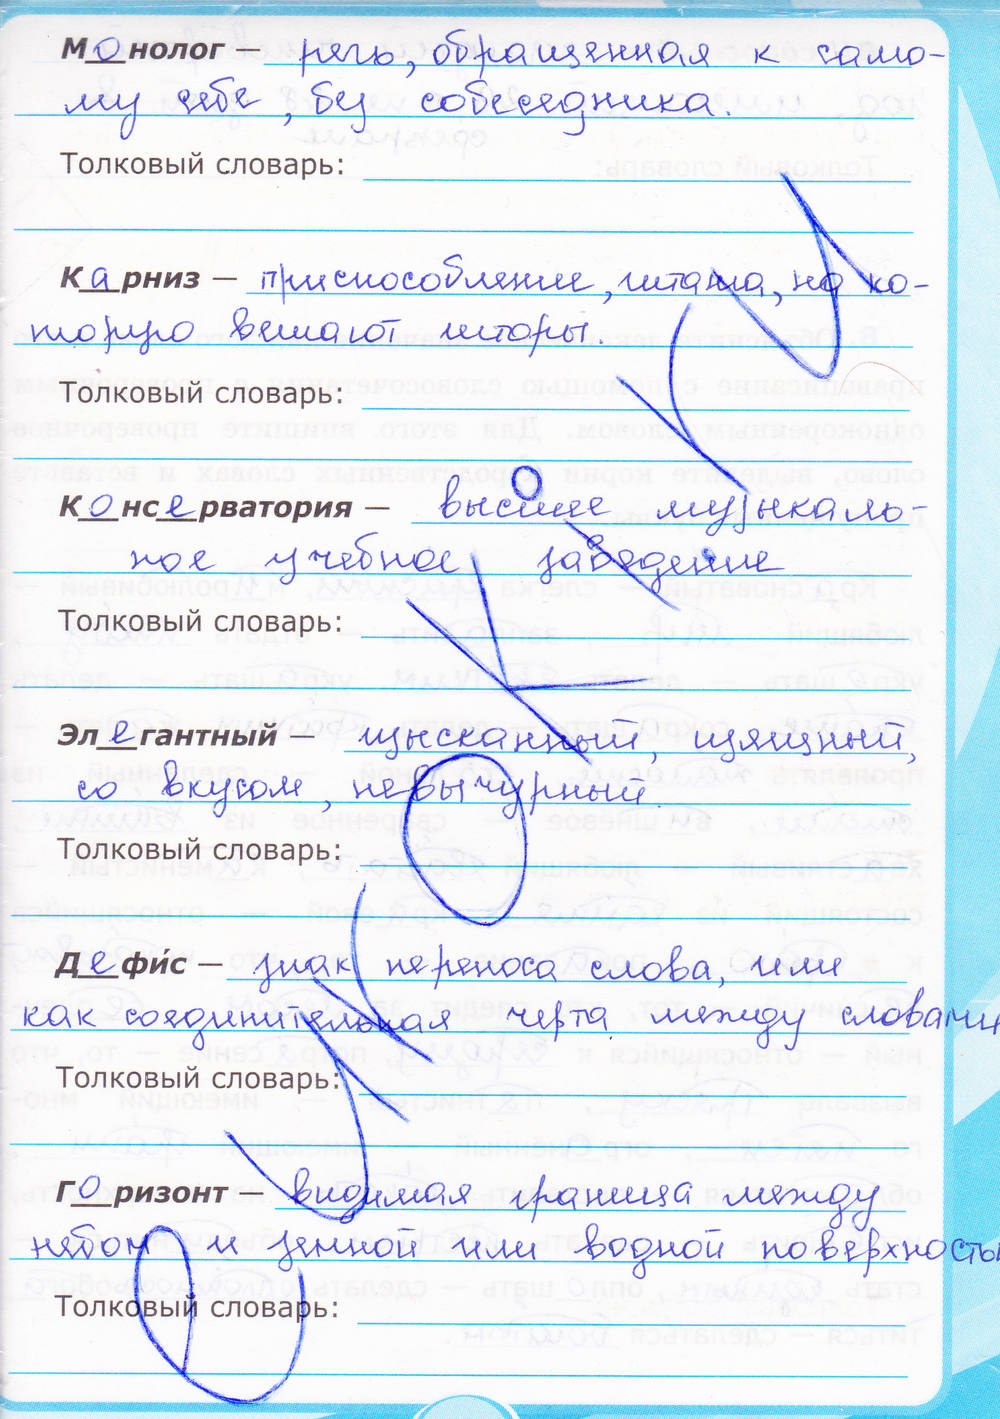 Монолог — речь, обращенная к само-
му себе, без собеседника.
Толковый словарь:
Карниз — приспособление, штанга, на ко-
торую вешают шторы.
Толковый словарь:
Консерватория — высшее музыкаль-
ное учебное заведение
Толковый словарь:
Элегантный — изысканный, изящный,
со вкусом, невычурный.
Толковый словарь:
Дефи́с — знак переноса слова, или
как соединительная черта между словами
Толковый словарь:
Горизонт — видимая граница между
небом и земной или водной поверхностью
Толковый словарь: